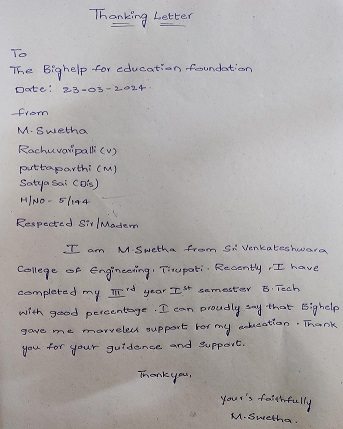 Thanking Letter
To
The Bighelp for education foundation
Date: 23-03-2024.
from
M. Swetha
Rachuvaripalli (V)
puttaparthi (M)
Satya Sai (Dis)
H/NO - 5/144
Respected Sir/Madem
I am M. Swetha from Sri Venkateshwara
College of Engineering, Tirupati. Recently, I have
completed my IIIrd year Ist semester B.Tech
with good percentage. I can proudly say that Bighelp
gave me marveleu support for my education. Thank
you for your guidence and Support.
Thankyou,
your's faithfully
M. Swetha.